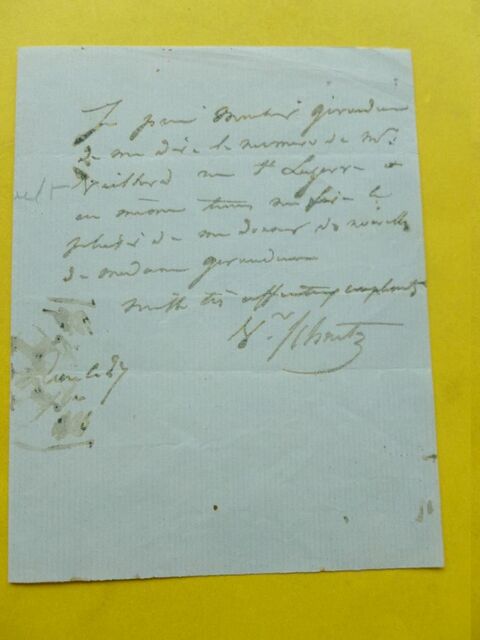 Je prie Monsieur Girardin
de me dire le numero de Mr.
rue St Lazarre &
en même tems me faire le
plaisir de me donner des nouvelles
de madame Girardin
mille très affectueux compliments
Schontz